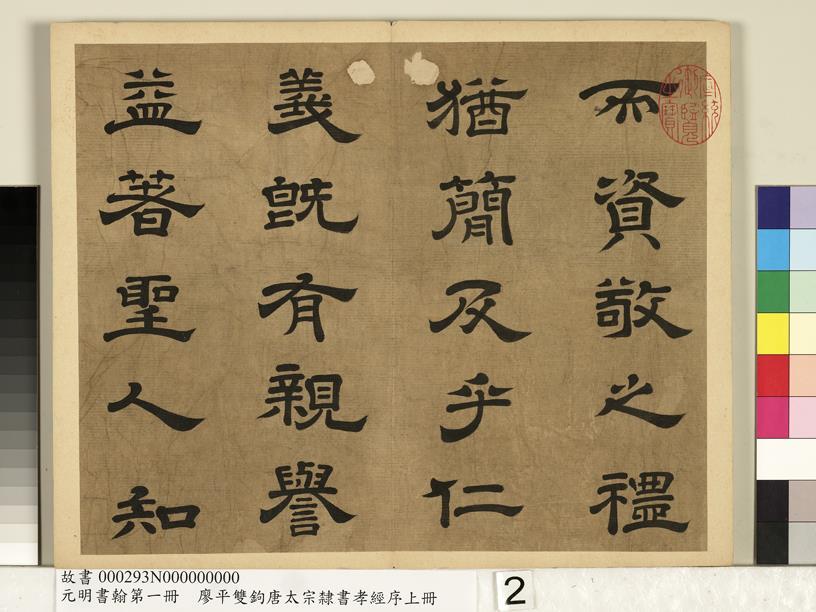 而資敬之禮
猶簡及乎仁
義既有親譽
益著聖人知
宣統
御覽
之寶
故書 000293N000000000
元明書翰第一冊　廖平雙鉤唐太宗隸書孝經序上冊
2